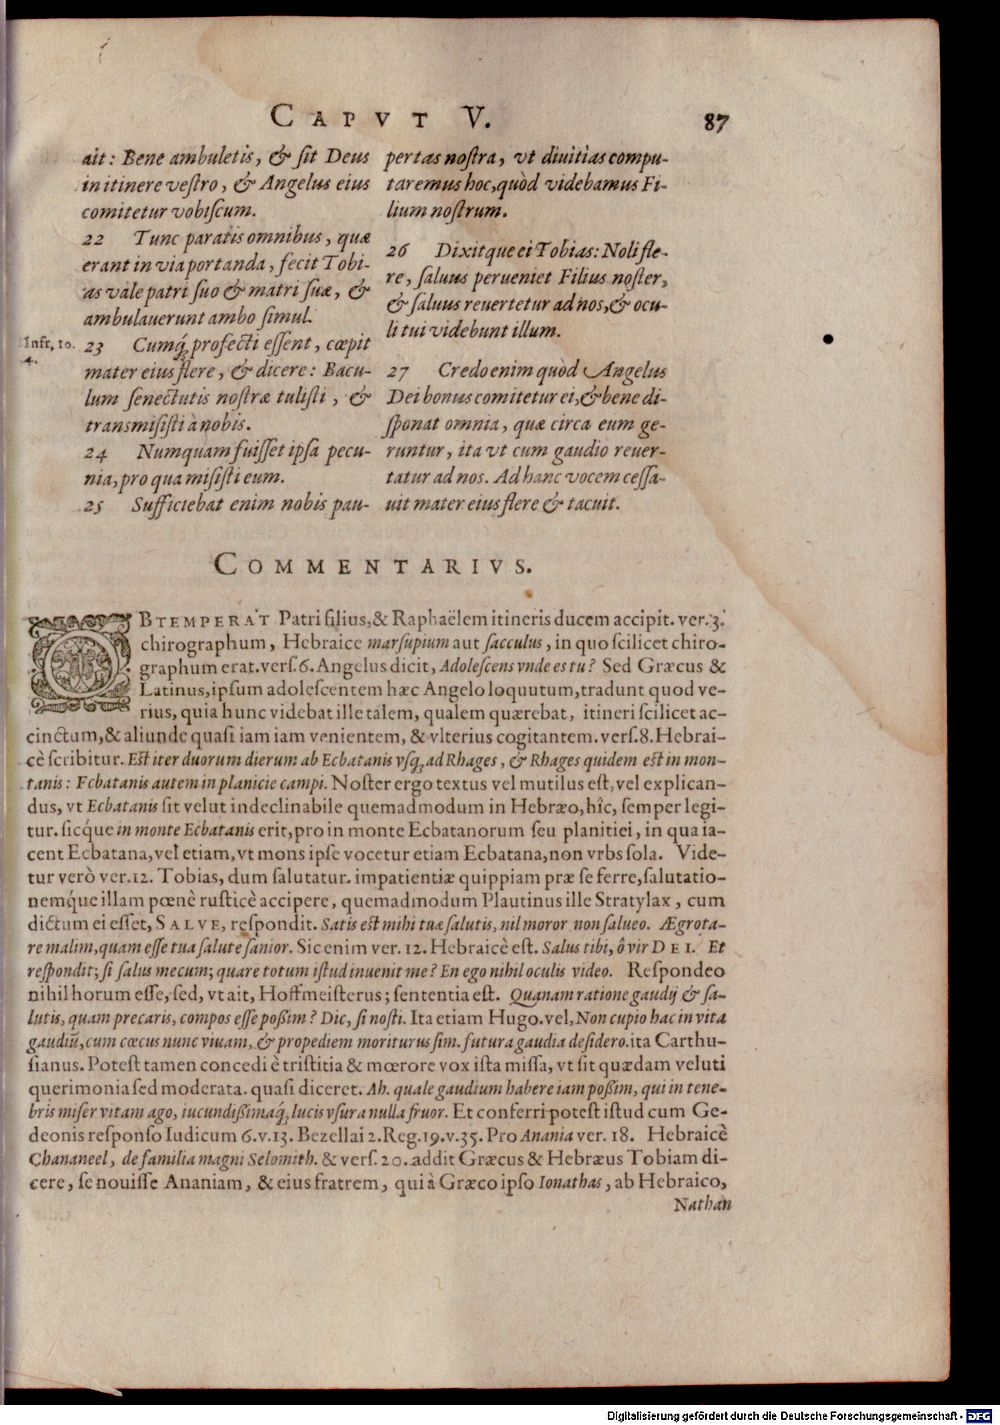 CAPVT V. 87
ait: Bene ambuletis, & ſit Deus
in itinere veſtro, & Angelus eius
comitetur vobiſcum.
22 Tunc paratis omnibus, quæ
erant in via portanda, fecit Tobi-
as vale patri ſuo & matri ſuæ, &
ambulauerunt ambo ſimul.
Infr. 10.
4.
23 Cumq́; profecti eſſent, cœpit
mater eius flere, & dicere: Bacu-
lum ſenectutis noſtræ tuliſti, &
transmiſiſti à nobis.
24 Numquam fuiſſet ipſa pecu-
nia, pro qua miſiſti eum.
25 Sufficiebat enim nobis pau-
pertas noſtra, vt diuitias compu-
taremus hoc, quòd videbamus Fi-
lium noſtrum.
26 Dixitque ei Tobias: Noli fle-
re, ſaluus perueniet Filius noſter,
& ſaluus reuertetur ad nos, & ocu-
li tui videbunt illum.
27 Credo enim quòd Angelus
Dei bonus comitetur ei, & bene di-
ſponat omnia, quæ circa eum ge-
runtur, ita vt cum gaudio reuer-
tatur ad nos. Ad hanc vocem ceſſa-
uit mater eius flere & tacuit.
COMMENTARIVS.
OBTEMPERAT Patri filius, & Raphaëlem itineris ducem accipit. ver. 3.
chirographum, Hebraice marſupium aut ſacculus, in quo ſcilicet chiro-
graphum erat. verſ. 6. Angelus dicit, Adoleſcens vnde es tu? Sed Græcus &
Latinus, ipſum adoleſcentem hæc Angelo loquutum, tradunt quod ve-
rius, quia hunc videbat ille talem, qualem quærebat, itineri ſcilicet ac-
cinctum, & aliunde quaſi iam iam venientem, & vlterius cogitantem. verſ. 8. Hebrai-
cè ſcribitur. Eſt iter duorum dierum ab Ecbatanis vſq; ad Rhages, & Rhages quidem eſt in mon-
tanis: Ecbatanis autem in planicie campi. Noſter ergo textus vel mutilus eſt, vel explican-
dus, vt Ecbatanis ſit velut indeclinabile quemadmodum in Hebræo, hîc, ſemper legi-
tur. ſicq́ue in monte Ecbatanis erit, pro in monte Ecbatanorum ſeu planitiei, in qua ia-
cent Ecbatana, vel etiam, vt mons ipſe vocetur etiam Ecbatana, non vrbs ſola. Vide-
tur verò ver. 12. Tobias, dum ſalutatur. impatientiæ quippiam præ ſe ferre, ſalutatio-
nemq́ue illam pœnè ruſticè accipere, quemadmodum Plautinus ille Stratylax, cum
dictum ei eſſet, SALVE, reſpondit. Satis eſt mihi tuæ ſalutis, nil moror non ſalueo. Ægrota-
re malim, quam eſſe tua ſalute ſanior. Sic enim ver. 12. Hebraicè eſt. Salus tibi, ô vir DEI. Et
reſpondit; ſi ſalus mecum; quare totum iſtud inuenit me? En ego nihil oculis video. Reſpondeo
nihil horum eſſe, ſed, vt ait, Hoffmeiſterus; ſententia eſt. Quanam ratione gaudij & ſa-
lutis, quam precaris, compos eſſe poßim? Dic, ſi noſti. Ita etiam Hugo. vel, Non cupio hac in vita
gaudiũ, cum cœcus nunc viuam, & propediem moriturus ſim. futura gaudia deſidero. ita Carthu-
ſianus. Poteſt tamen concedi è triſtitia & mœrore vox iſta miſſa, vt ſit quædam veluti
querimonia ſed moderata. quaſi diceret. Ah. quale gaudium habere iam poßim, qui in tene-
bris miſer vitam ago, iucundißimaq́; lucis vſura nulla fruor. Et conferri poteſt iſtud cum Ge-
deonis reſponſo Iudicum 6. v. 13. Bezellai 2. Reg. 19. v. 35. Pro Anania ver. 18. Hebraicè
Chananeel, de familia magni Selomith. & verſ. 20. addit Græcus & Hebræus Tobiam di-
cere, ſe nouiſſe Ananiam, & eius fratrem, qui à Græco ipſo Ionathas, ab Hebraico,
Nathan
Digitalisierung gefördert durch die Deutsche Forschungsgemeinschaft - DFG